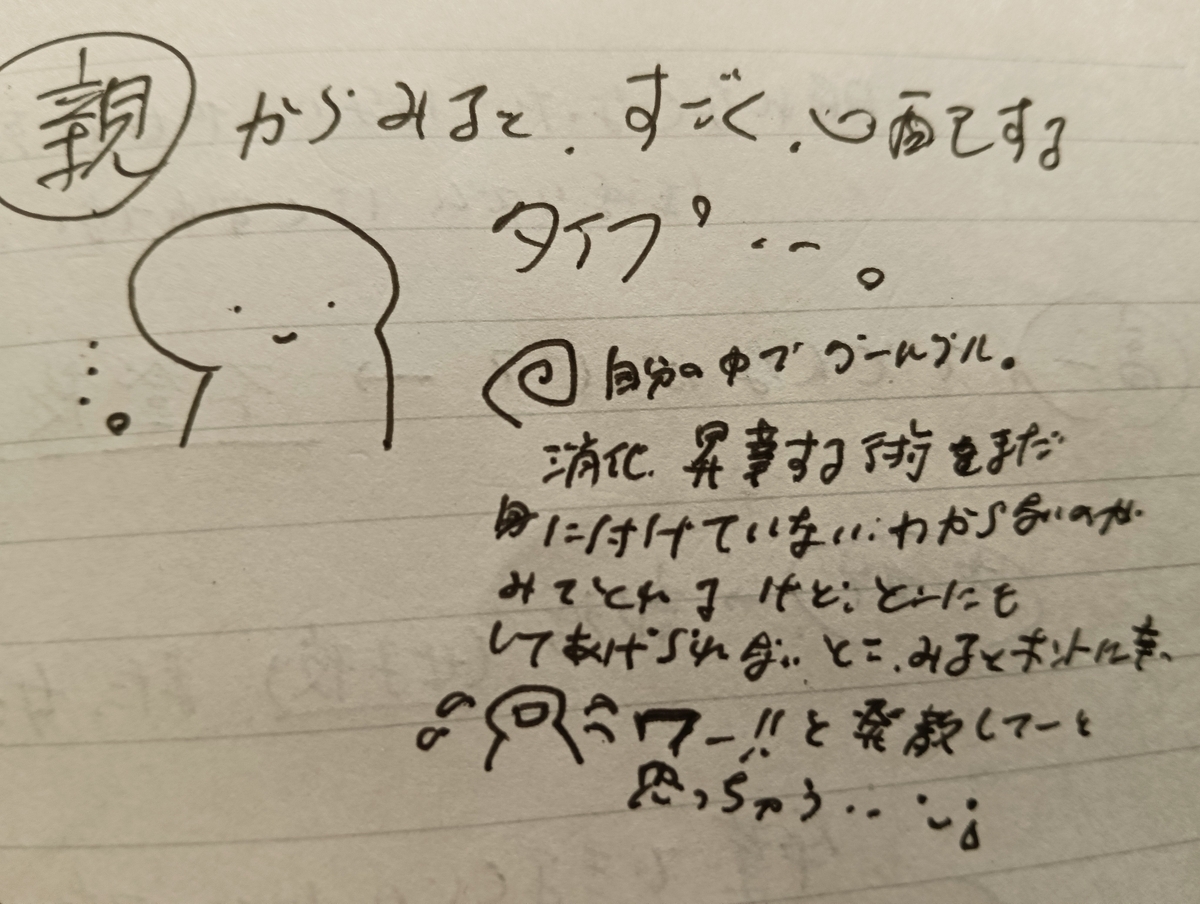 親からみると、すごく、心配する
タイプ…。
自分の中でグールグル。
消化、昇華する術をまだ
身に付けていない…わからないのが
みてとれるけど…どーにも
してあげられない…とこ、みるとホントに辛、
ワー!!と発散してーと
思っちゃう…